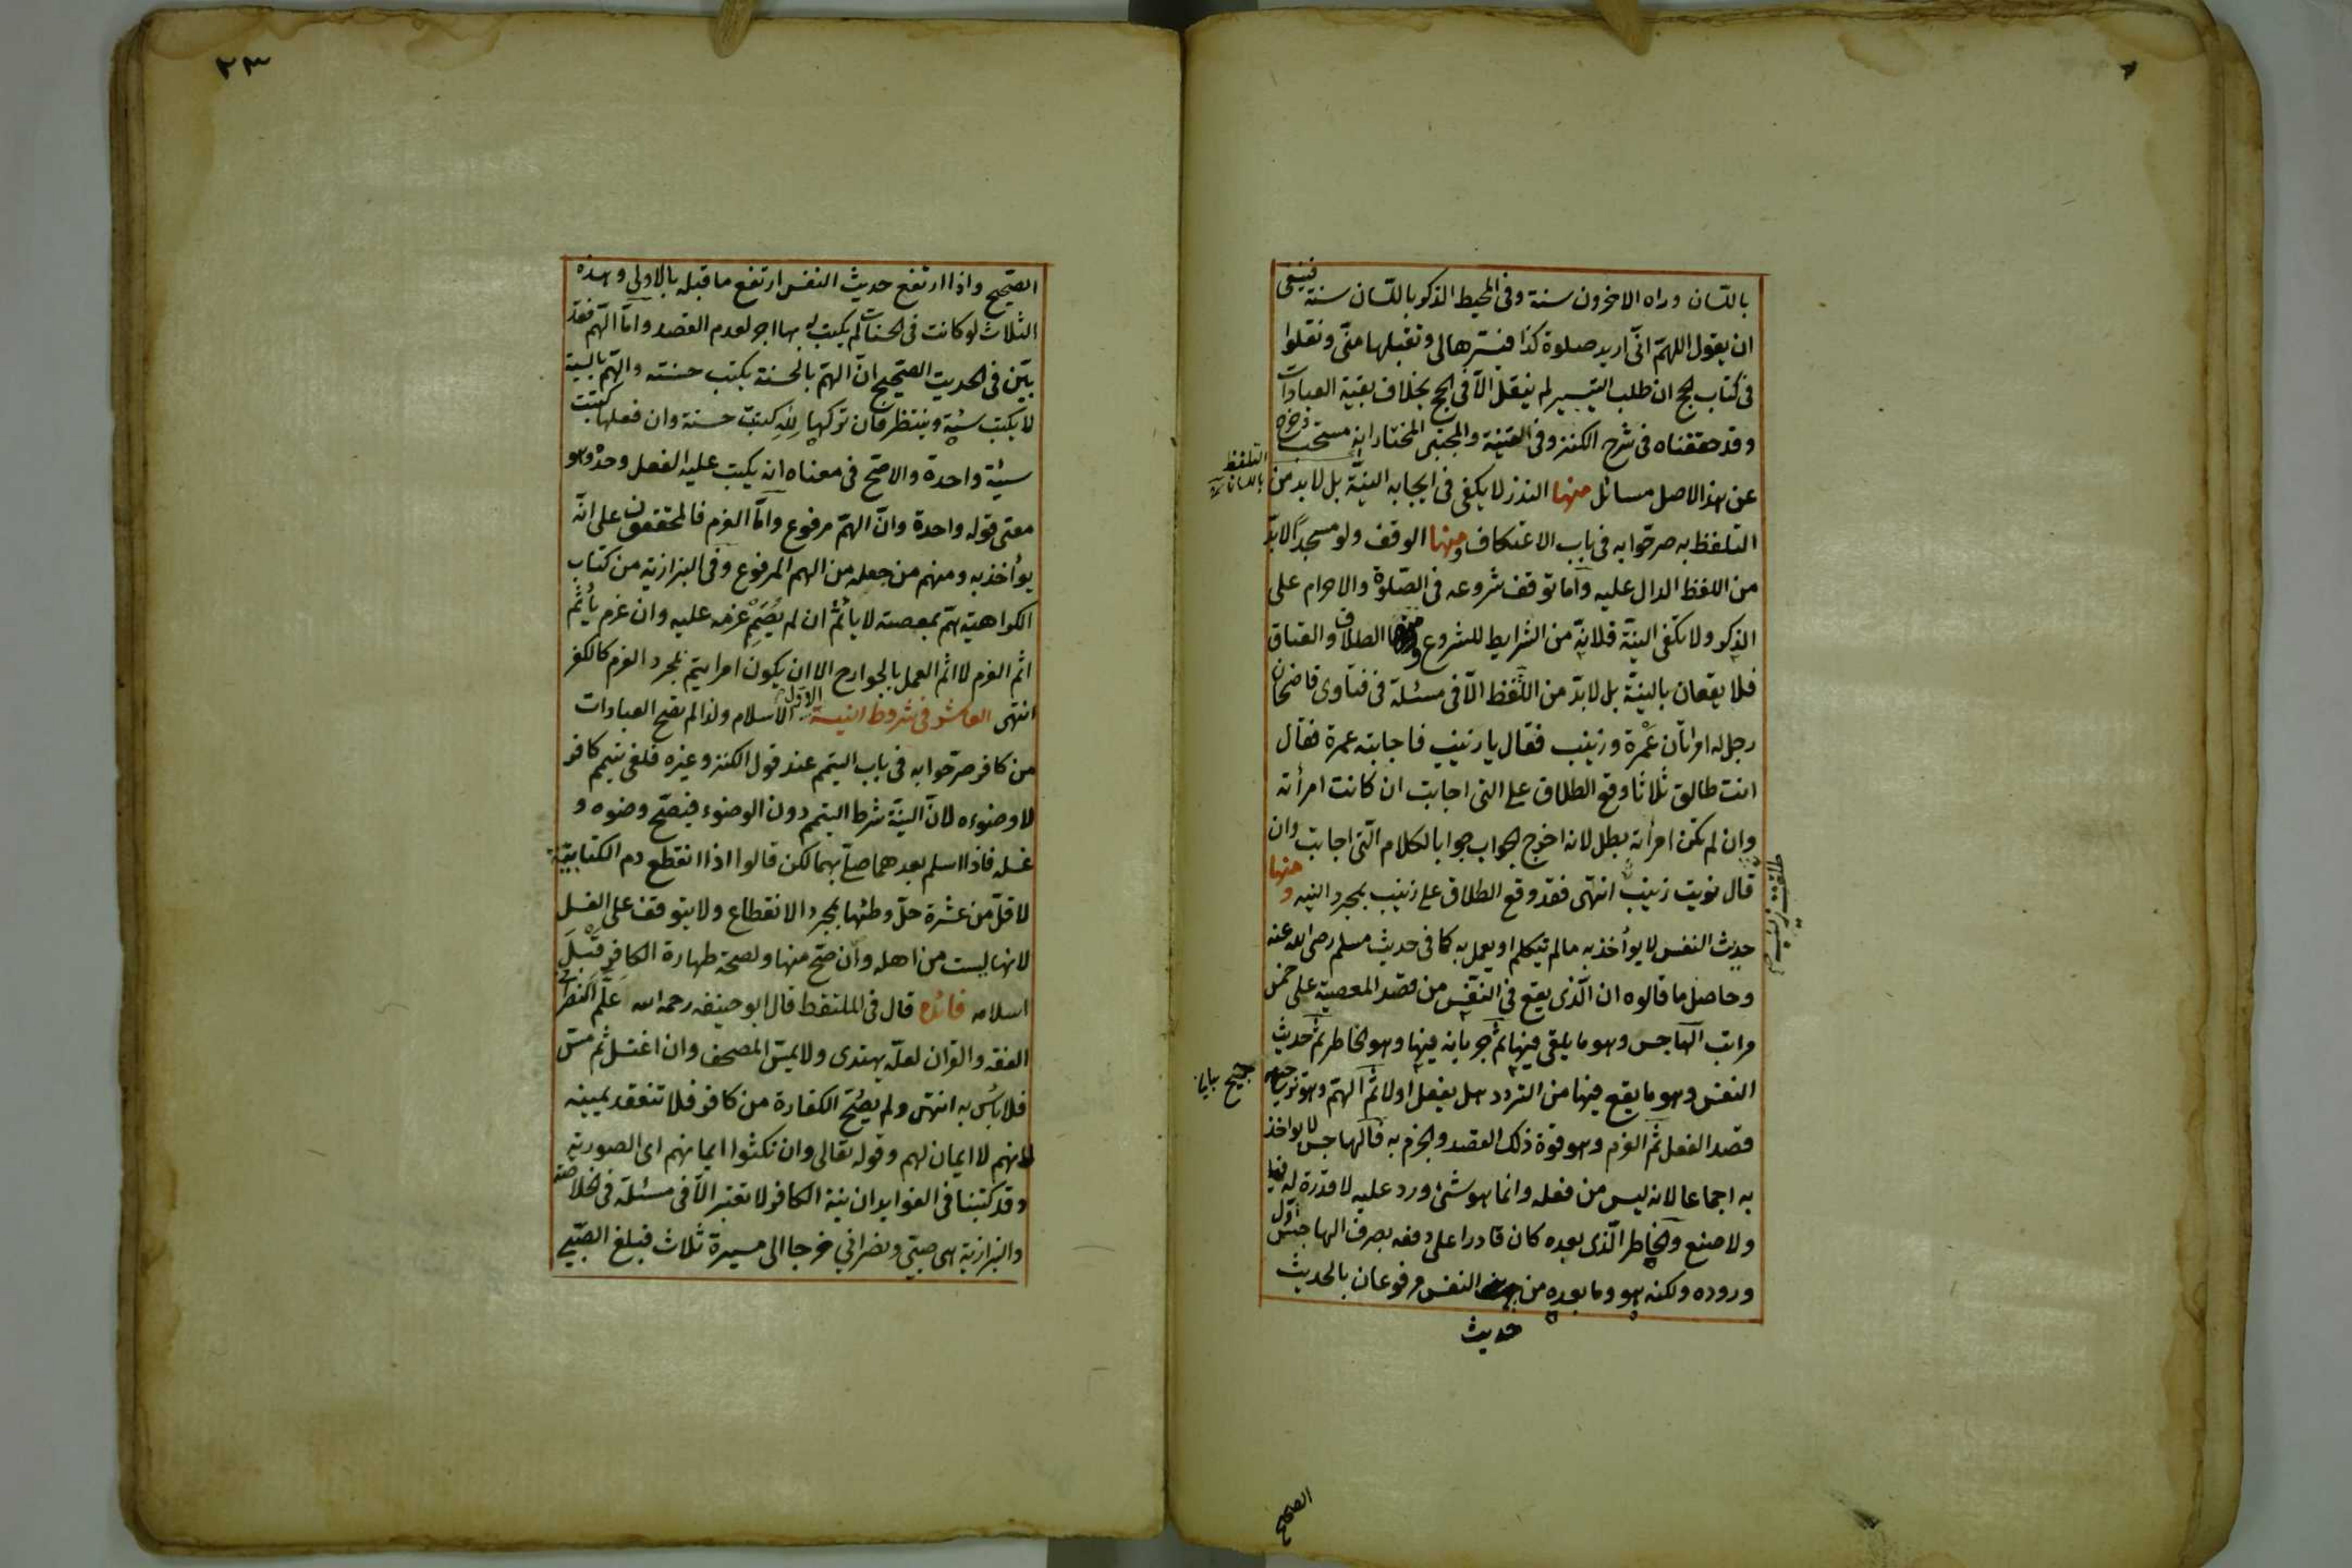 باللسان وراه الاخرون سنة وفى المحيط الذكر باللسان سنة فينبغى
ان يقول اللهم انى اريد صلوة كذا فيسرها لى وتقبلها منى ونقلوا
فى كتاب الحج ان طلب التيسير لم ينقل الا فى الحج بخلاف بقية العبادات
وقد حققناه فى شرح الكنز وفى القنية والمجتبى المختار انه مستحب وخرج
التلفظ
باللسان
عن هذا الاصل مسائل منها النذر لا يكفى فى ايجابه النية بل لا بد من
التلفظ به صرحوا به فى باب الاعتكاف ومنها الوقف ولو مسجدا لا بد
من اللفظ الدال عليه واما توقف شروعه فى الصلوة والاحرام على
الذكر ولا تكفى النية فلانه من الشرايط للشروع ومنها الطلاق والعتاق
فلا يقعان بالنية بل لا بد من التلفظ الا فى مسئلة فى فتاوى قاضخان
رجل له امراتان عمرة وزينب فقال يا زينب فاجابته عمرة فقال
انت طالق ثلاثا وقع الطلاق على التى اجابت ان كانت امرأته
وان لم تكن امرأته بطل لانه اخرج الجواب جوابا لكلام التى اجابت وان
قال نويت زينب انتهى فقد وقع الطلاق على زينب بمجرد النيه ومنها
حديث النفس لا يوأخذ به ما لم تيكلم او يعمل به كما فى حديث مسلم رضى الله عنه
وحاصل ما قالوه ان الذى يقع فى النفس من قصد المعصية على خمس
مراتب الهاجس وهو ما يلقى فيها ثم جريانه فيها وهو الخاطر ثم حديث
النفس وهو ما يقع فيها من التردد هل يفعل اولا ثم الهم وهو ترجيح
قصد الفعل ثم العزم وهو قوة ذلك القصد والجزم به فالهاجس لا يواخذ
به اجماعا لانه ليس من فعله وانما هو شئ ورد عليه لا قدرة له فيها
ولا صنع والخاطر الذى بعده كان قادرا على دفعه بصرف الهاجس اول
وروده ولكنه هو وما بعده من النفس مرفوعان بالحديث
حديث
الصحيح
٢٣
الصحيح واذا ارتفع حديث النفس ارتفع ما قبله بالاولى وهذه
الثلاث لو كانت فى الحسنات لم يكتب له بها اجر لعدم القصد واما الهم فقد
بين فى الحديث الصحيح ان الهم بالحسنة يكتب حسنته والهم بالسيئة
لا يكتب سيئة وينتظر فان تركها لله كتبت حسنة وان فعلها كتبت
سيئة واحدة والاصح فى معناه انه يكتب عليه الفعل وحده وهو
معنى قوله واحدة وان الهم مرفوع واما العزم فالمحققون على انه
يوأخذ به ومنهم من جعله من الهم المرفوع وفى البزازية من كتاب
الكراهية هم بمعصية لا يأثم ان لم يصمم عزمه عليه وان عزم يأثم
اثم العزم لا اثم العمل بالجوارح الا ان يكون امرا يتم بمجرد العزم كالكفر
انتهى العاشر فى شروط النية الاول الاسلام ولذا لم تصح العبادات
من كافر صرحوا به فى باب التيمم عند قول الكنز وغيره فلغى تيمم كافر
لا وضوءه لان النية شرط التيمم دون الوضوء فيصح وضوه و
غسله فاذا اسلم بعدهما صلى بهما لكن قالوا اذا انقطع دم الكتابية
لاقل من عشرة حل وطئها بمجرد الانقطاع ولا يتوقف على الغسل
لانها ليست من اهله وان صح منها ولصحة طهارة الكافر قبل
اسلامه فائده قال فى الملتقط قال ابو حنيفه رحمه الله علم النصرانى
الفقه والقران لعله يهتدى ولا يمس المصحف وان اغتسل ثم مس
فلا باس به انتهى ولم يصح الكفارة من كافر فلا تنعقد يمينه
انهم لا ايمان لهم وقوله تعالى وان نكثوا ايمانهم اى الصورية
وقد كتبنا فى الفوايد ان نية الكافر لا تعتبر الا فى مسئلة فى الخلاصة
والبزازية هى صبى ونصرانى خرجا الى مسيرة ثلاث فبلغ الصبى